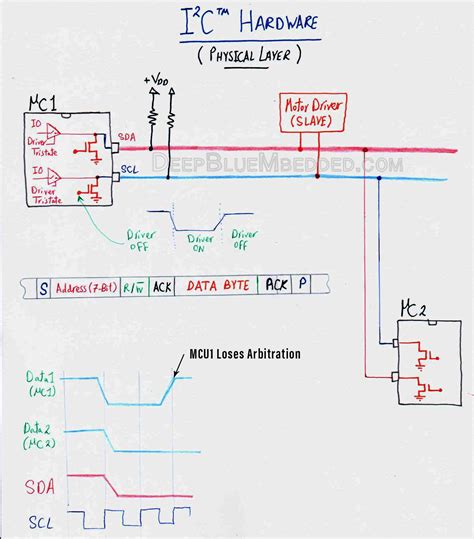 I²C™ HARDWARE
(PHYSICAL LAYER)
+VDD
μC1
IO
Driver
Tristate
SDA
IO
Driver
Tristate
SCL
Motor Driver
(SLAVE)
DEEPBLUEMBEDDED.COM
Driver
OFF
Driver
OFF
Driver
ON
Driver
OFF
S Address (7-Bit) R/W̅ ACK DATA BYTE ACK P
μC2
MCU1 Loses Arbitration
Data1
(μC1)
Data2
(μC2)
SDA
SCL